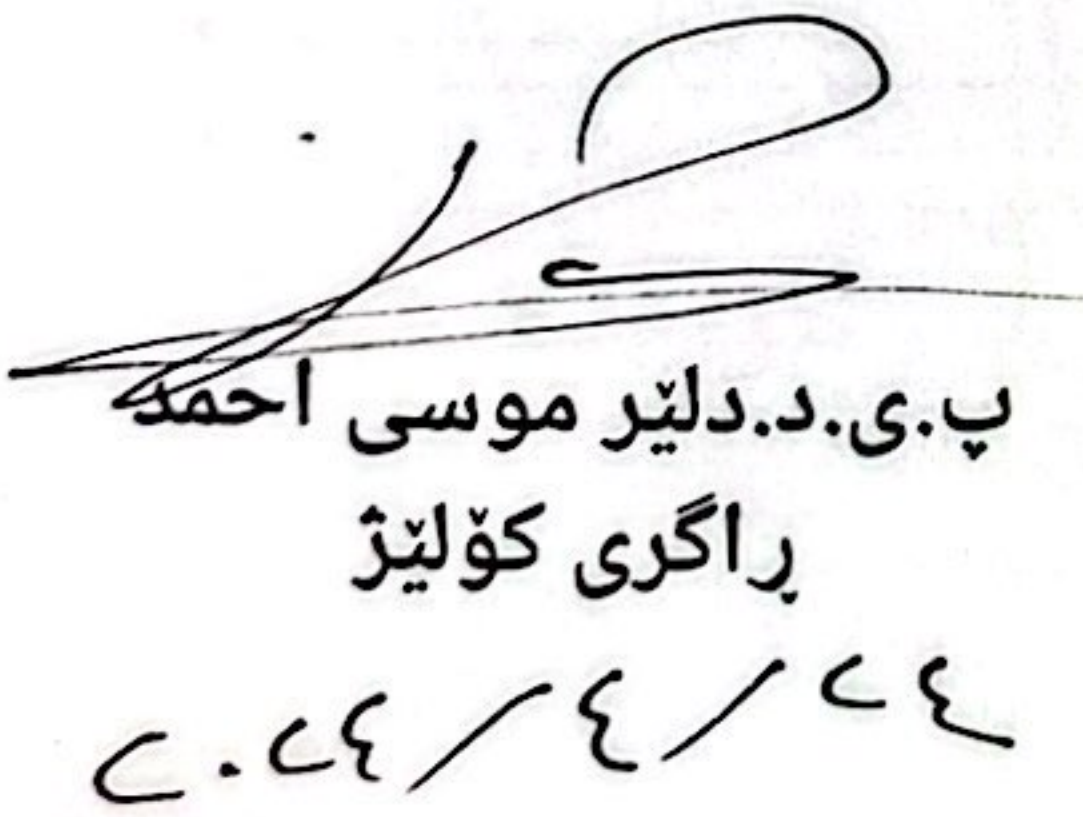 پ.ی.د.دلێر موسی احمد
ڕاگری کۆلێژ
٢٠٢٤/٤/٢٤